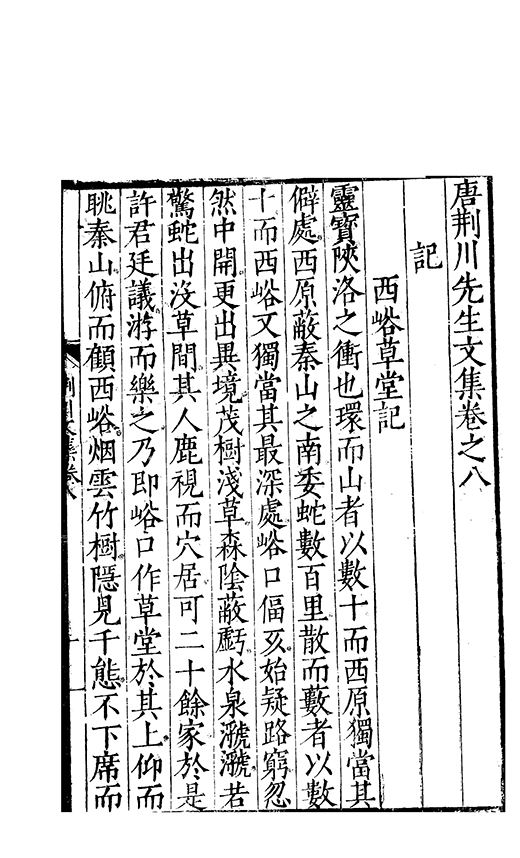 唐荆川先生文集卷之八
記
西峪草堂記
靈寶陝洛之衝也環而山者以數十而西原獨當其
僻處西原蔽秦山之南委蛇數百里散而藪者以數
十而西峪又獨當其最深處峪口偪亥始疑路窮忽
然中開更出異境茂樹淺草森陰蔽虧水泉㶁㶁若
驚蛇出沒草間其人鹿視而穴居可二十餘家於是
許君廷議游而樂之乃即峪口作草堂於其上仰而
眺秦山俯而顧西峪烟雲竹樹隱見千態不下席而
荆川文集卷八